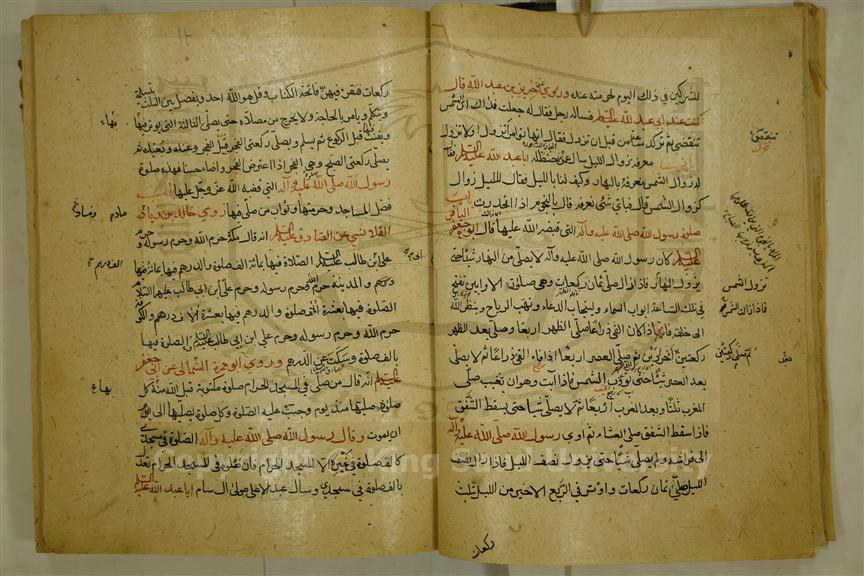 للمشركين في ذلك اليوم لحرمته عنده وروي عن حريز بن عبد الله قال
كنت عند ابي عبد الله عليه السلام فسأله رجل فقال له جعلت فداك ان الشمس
تنقضي ثم تركد ساعة من قبل ان تزول فقال انها تؤامر أتزول ام لا تزول
باب معرفة زوال الليل سأل عمر بن حنظلة ابا عبد الله عليه السلام فقال
له زوال الشمس نعرفه بالنهار وكيف لنا بالليل فقال لليل زوال
كزوال الشمس قال فباي شئ نعرفه قال بالنجوم اذا انحدرت باب
صلوة رسول الله صلى الله عليه وآله التي قبضه الله عليها قال ابو جعفر الباقر
عليه السلام كان رسول الله صلى الله عليه وآله لا يصلي من النهار شيئا حتى
يزول النهار فاذا زال صلى ثمان ركعات وهي صلوة الاوابين تفتح
في تلك الساعة ابواب السماء ويستجاب الدعاء وتهب الرياح وينظر الله
الى خلقه فاذا كان الفئ ذراعا صلى الظهر اربعا وصلى بعد الظهر
ركعتين ثم صلى ركعتين اخراوين ثم صلى العصر اربعا اذا فاء الفئ ذراعا ثم لا يصلي
بعد العصر شيئا حتى تؤوب الشمس فاذا آبت وهو ان تغيب صلى
المغرب ثلثا وبعد المغرب اربعا ثم لا يصلي شيئا حتى يسقط الشفق
فاذا سقط الشفق صلى العشاء ثم اوى رسول الله صلى الله عليه وآله
الى فراشه ولم يصل شيئا حتى يزول نصف الليل فاذا زال نصف
الليل صلى ثمان ركعات واوتر في الربع الاخير من الليل بثلث
ركعات
تنقضي
تزول الشمس
فاذا زالت الشمس
ثم صلى ركعتين
١٢
ركعات فقرأ فيهن فاتحة الكتاب وقل هو الله احد ويفصل بين الثلث بتسليمة
ويتكلم ويأمر بالحاجة ولا يخرج من مصلاه حتى يصلي الثالثة التي يوتر فيها
ويقنت فيها قبل الركوع ثم يسلم ويصلي ركعتي الفجر قبل الفجر وعنده وبعيده ثم
يصلي ركعتي الصبح وهي الفجر اذا اعترض الفجر واضاء حسنا فهذه صلوة
رسول الله صلى الله عليه وآله التي قبضه الله عز وجل عليها باب
فضل المساجد وحرمتها وثواب من صلى فيها روى خالد بن زياد
القلانسي عن الصادق عليه السلام انه قال مكة حرم الله وحرم رسوله وحرم
علي بن ابي طالب عليه السلام الصلاة فيها بمائة الف صلوة والدرهم فيها بمائة الف
درهم والمدينة حرم الله وحرم رسوله وحرم علي بن ابي طالب عليه السلام
الصلوة فيها بعشرة الف صلوة والدرهم فيها بعشرة الاف درهم والكوفة
حرم الله وحرم رسوله وحرم علي بن ابي طالب عليه السلام الصلوة فيها
بالف صلوة وسكت عن الدرهم وروى ابو حمزة الثمالي عن ابي جعفر
عليه السلام انه قال من صلى في المسجد الحرام صلوة مكتوبة قبل الله منه كل
صلوة صليها منذ يوم وجبت عليه الصلوة وكل صلوة يصليها الى يوم
ان يموت وقال رسول الله صلى الله عليه وآله الصلوة في مسجدي
كالف صلوة في غيره الا المسجد الحرام فان صلوة في المسجد الحرام تعدل
بالف صلوة في مسجدي وسأل عبد الاعلى مولى ال سام ابا عبد الله عليه السلام